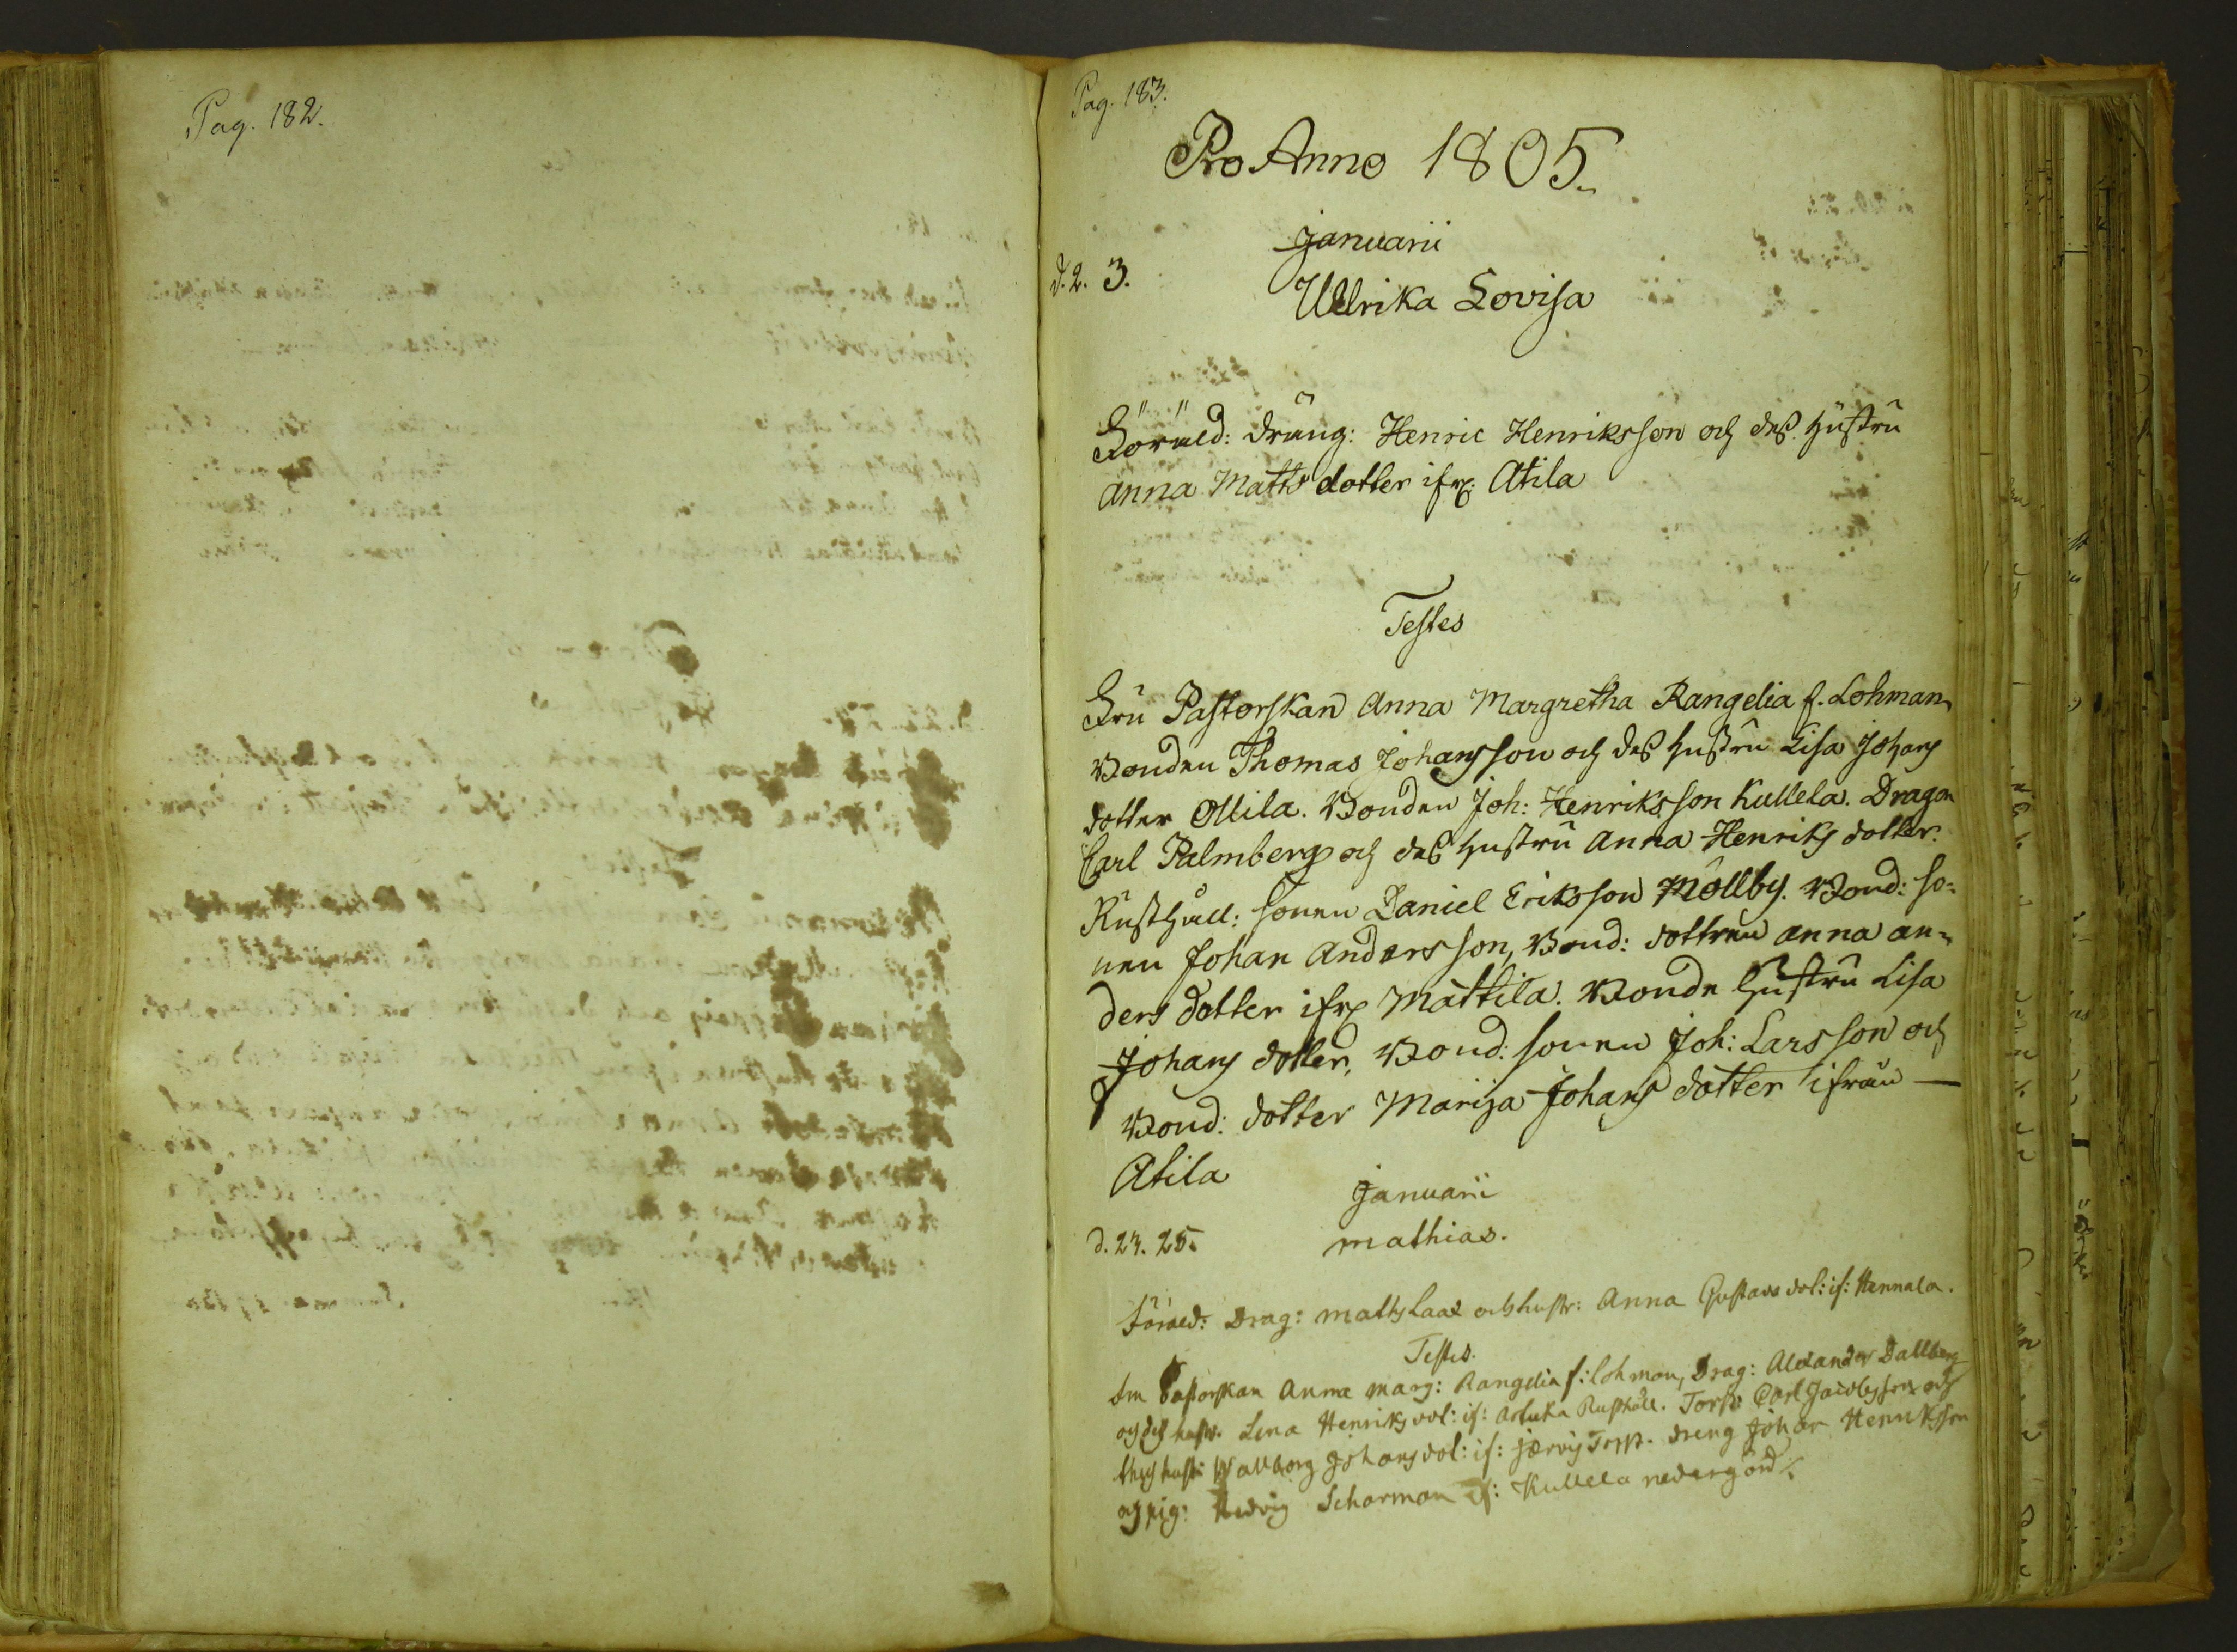 Pag. 182.
Pag. 183.
Pro Anno 1805.
Januarii
d. 2. 3.
Ullrika Lovisa
Föräld: dräng: Henric Henriksson och dess hustru
Anna Matts dotter ifr: Atila
Testes
Fru Pastorskan Anna Margretha Rangelia f. Lohman
Bonden Thomas Johansson och dess hustru Lisa Johans
dotter Ollila. Bonden Joh: Henriksson Kullela. Dragon
Carl Palmberg och dess hustru Anna Henriks dotter.
Rusthåll: sonen Daniel Eriksson Möllby. Bond: so-
nen Johan Andersson, Bond: dottren Anna An-
ders dotter ifr: Mattila. Bonde hustru Lisa
Johans dotter, Bond: sonen Joh: Larsson och
Bond: dotter Marija Johans dotter ifrån —
Atila
Januarii
d. 24. 25.
Mathias.
Föräld: Drag: Matts Laax och hustr: Anna Gustavs dot: if: Hennala.
Testes.
Pastorskan Anna Marg: Rangelia f: Lohman, Drag: Alexander Dallberg
och dess hustr. Lena Henriks dot: if: Artuka Rusthåll. Torp: Carl Jacobsson och
dess hustr: Wallborg Johans dot: if: Jervis Torp. Dreng Johan Henriksson
och pig: Hedvig Scharman if: Kullela nedergård